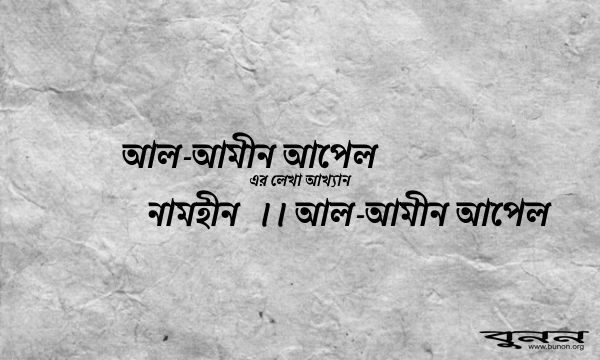 আল-আমীন আপেল
এর লেখা আখ্যান
নামহীন ।। আল-আমীন আপেল
বুনন
www.bunon.org